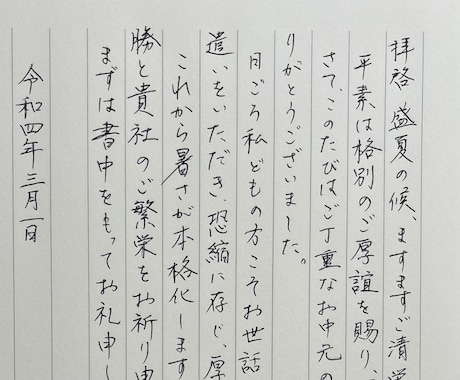 拝啓 盛夏の候、ますますご清栄
平素は格別のご厚誼を賜り、
さて、このたびはご丁重なお中元の
りがとうございました。
日ごろ私どもの方こそお世話
遣いをいただき、恐縮に存じ、厚
これから暑さが本格化します
勝と貴社のご繁栄をお祈り申
まずは書中をもってお礼申し
令和四年三月一日